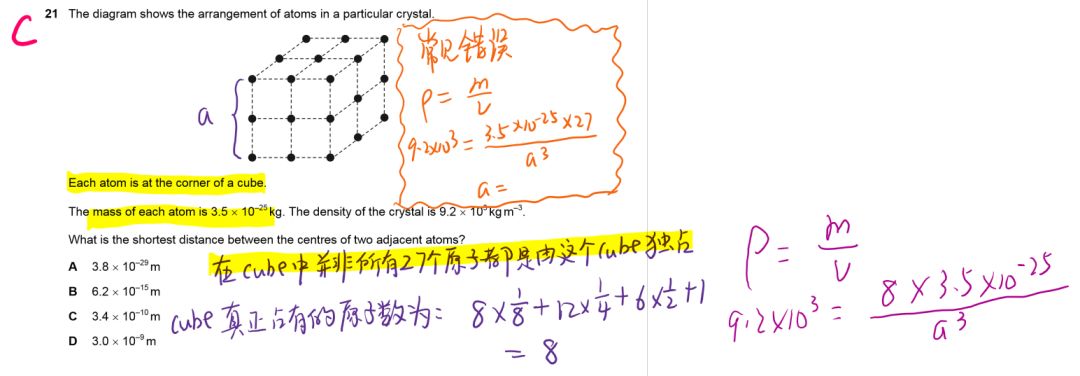 C
21 The diagram shows the arrangement of atoms in a particular crystal.
a
常见错误
ρ = m/v
9.2×10³ = 3.5×10⁻²⁵×27 / a³
a =
Each atom is at the corner of a cube.
The mass of each atom is 3.5 × 10⁻²⁵ kg. The density of the crystal is 9.2 × 10³ kg m⁻³.
What is the shortest distance between the centres of two adjacent atoms?
在cube中并非所有27个原子都是由这个cube独占
A 3.8 × 10⁻²⁹ m
B 6.2 × 10⁻¹⁵ m
C 3.4 × 10⁻¹⁰ m
D 3.0 × 10⁻⁹ m
cube真正占有的原子数为: 8×1/8+12×1/4+6×1/2+1
= 8
ρ = m/v
9.2×10³ = 8×3.5×10⁻²⁵ / a³